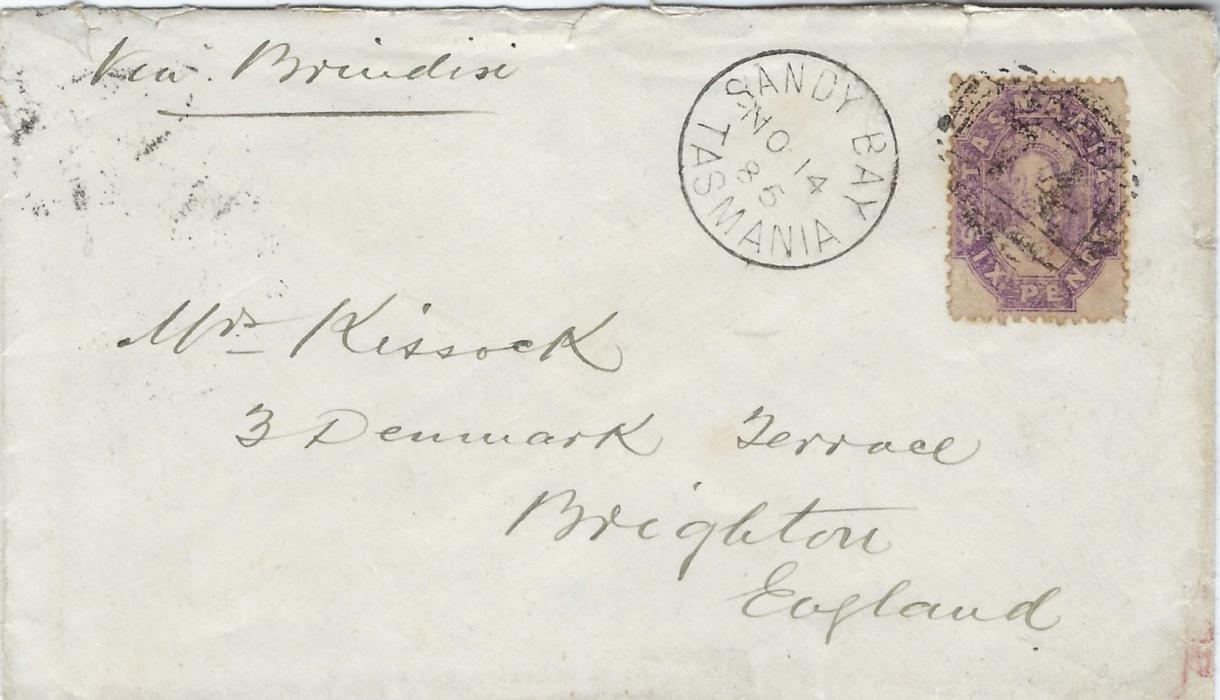 Via Brindisi
SANDY BAY
NO 14
85
TASMANIA
TASMANIA
SIX PENCE
Mrs Kissock
3 Denmark Terrace
Brighton
England